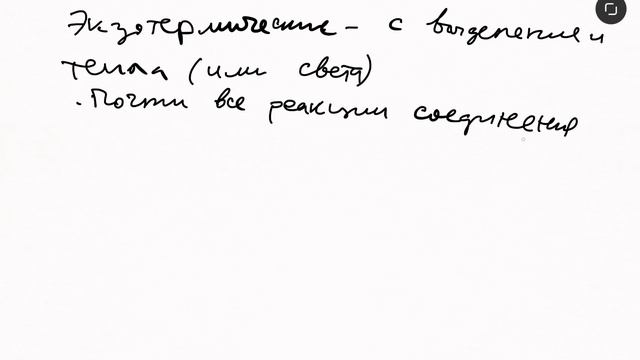 Экзотермические – с выделением
тепла (или света)
. Почти все реакции соединения